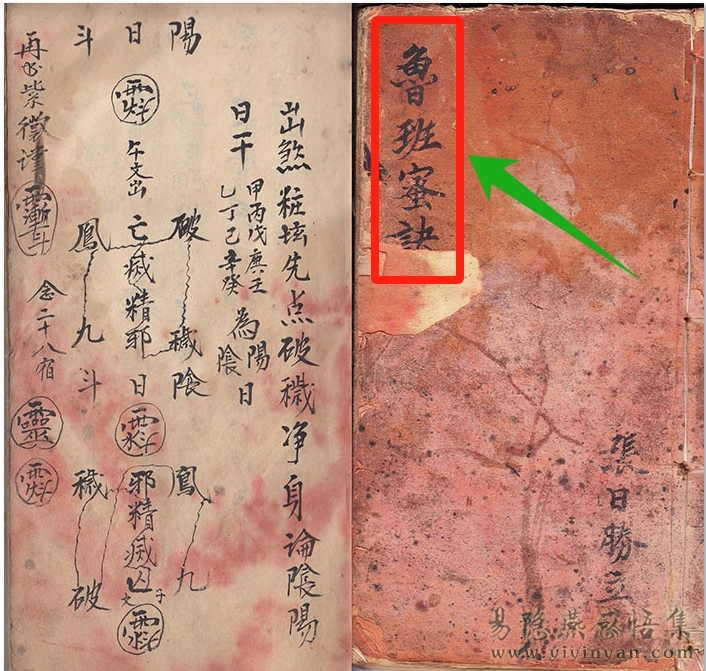 出煞粧先点破穢净身論陰陽
日干
甲丙戊庚壬
乙丁己辛癸
為陽日
陰
陽
日
斗
破穢陰
亡滅精邪日
鳳九斗
鳳九
邪精滅
穢破
再紫微
念二十八宿
靈
魯班蜜訣
日勝立
易隐燕感悟集
www.yiyinyan.com